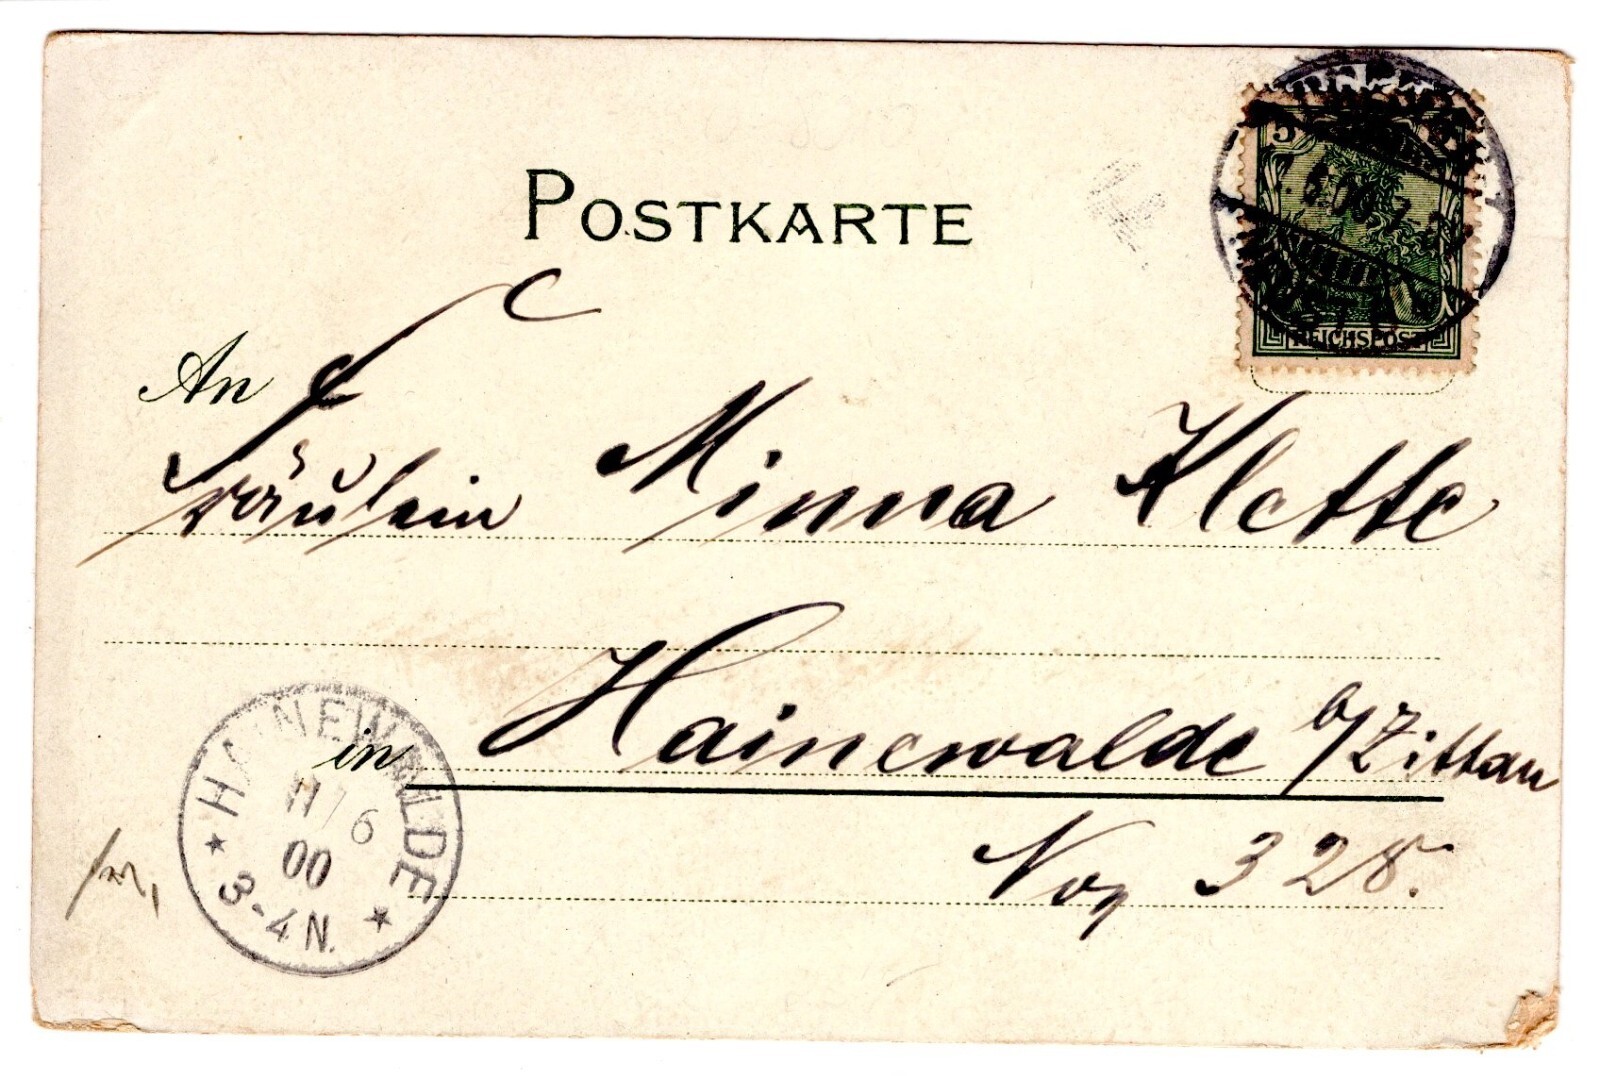 POSTKARTE
5
REICHSPOST
An
Fräulein Minna Klette
in Hainewalde b/Zittau
No 328.
HAINEWALDE
11/6
00
3-4N.